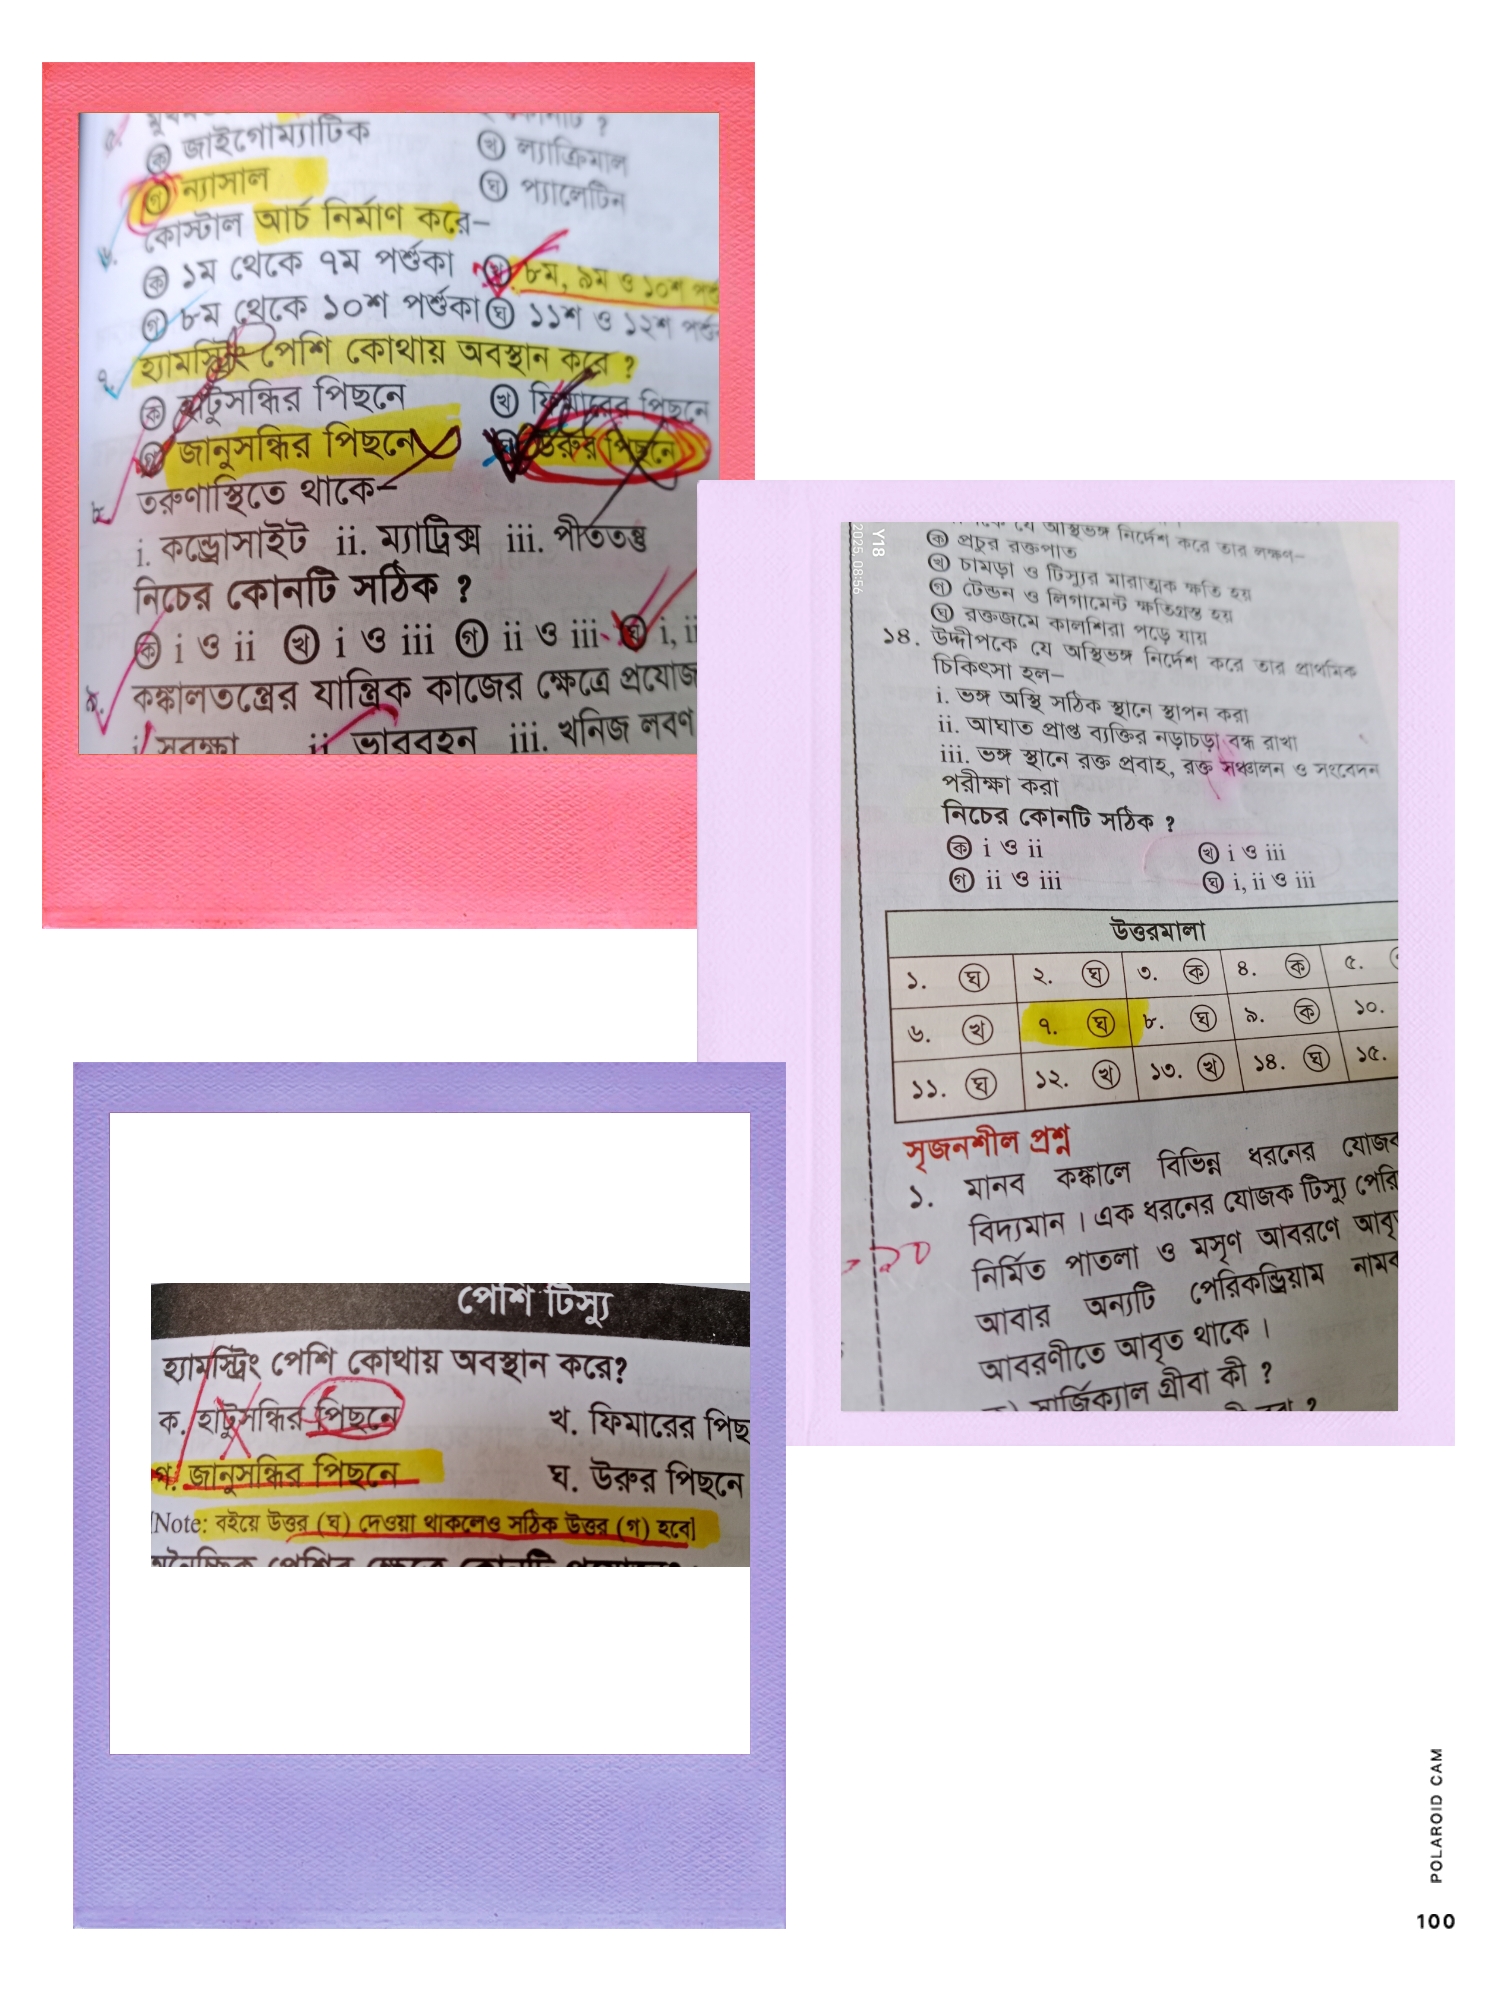 ক জাইগোম্যাটিক খ ল্যাক্রিমাল
গ ন্যাসাল ঘ প্যালেটিন
৬. কোস্টাল আর্চ নির্মাণ করে–
ক ১ম থেকে ৭ম পর্শুকা খ ৮ম, ৯ম ও ১০শ
গ ৮ম থেকে ১০শ পর্শুকা ঘ ১১শ ও ১২শ
৭. হ্যামস্ট্রিং পেশি কোথায় অবস্থান করে ?
ক হাঁটুসন্ধির পিছনে খ ফিমারের পিছনে
গ জানুসন্ধির পিছনে ঘ উরুর পিছনে
৮. তরুণাস্থিতে থাকে–
i. কন্ড্রোসাইট ii. ম্যাট্রিক্স iii. পীততন্তু
নিচের কোনটি সঠিক ?
ক i ও ii খ i ও iii গ ii ও iii ঘ i, ii
৯. কঙ্কালতন্ত্রের যান্ত্রিক কাজের ক্ষেত্রে
ii. ভারবহন iii. খনিজ লবণ
Y18
2025. 08:56
যে অস্থিভঙ্গ নির্দেশ করে তার লক্ষণ–
ক প্রচুর রক্তপাত
খ চামড়া ও টিস্যুর মারাত্মক ক্ষতি হয়
গ টেন্ডন ও লিগামেন্ট ক্ষতিগ্রস্ত হয়
ঘ রক্তজমে কালশিরা পড়ে যায়
১৪. উদ্দীপকে যে অস্থিভঙ্গ নির্দেশ করে তার প্রাথমিক
চিকিৎসা হল–
i. ভঙ্গ অস্থি সঠিক স্থানে স্থাপন করা
ii. আঘাত প্রাপ্ত ব্যক্তির নড়াচড়া বন্ধ রাখা
iii. ভঙ্গ স্থানে রক্ত প্রবাহ, রক্ত সঞ্চালন ও সংবেদন
পরীক্ষা করা
নিচের কোনটি সঠিক ?
ক i ও ii খ i ও iii
গ ii ও iii ঘ i, ii ও iii
উত্তরমালা
১. ঘ ২. ঘ ৩. ক ৪. ক ৫.
৬. খ ৭. ঘ ৮. ঘ ৯. ক ১০.
১১. ঘ ১২. খ ১৩. খ ১৪. ঘ ১৫.
সৃজনশীল প্রশ্ন
১. মানব কঙ্কালে বিভিন্ন ধরনের
বিদ্যমান । এক ধরনের যোজক টিস্যু
নির্মিত পাতলা ও মসৃণ আবরণে
আবার অন্যটি পেরিকন্ড্রিয়াম
আবরণীতে আবৃত থাকে ।
মার্জিক্যাল গ্রীবা কী ?
পেশি টিস্যু
হ্যামস্ট্রিং পেশি কোথায় অবস্থান করে?
ক. হাঁটুসন্ধির পিছনে খ. ফিমারের
গ. জানুসন্ধির পিছনে ঘ. উরুর পিছনে
[Note: বইয়ে উত্তর (ঘ) দেওয়া থাকলেও সঠিক উত্তর (গ) হবে]
POLAROID CAM
100